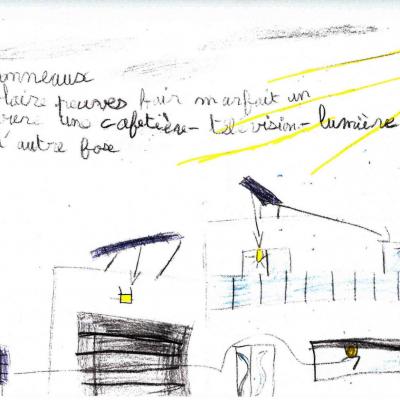 nneaux
laire peuves fair marfait un
une cafetière - television - lumière
d'autre fose